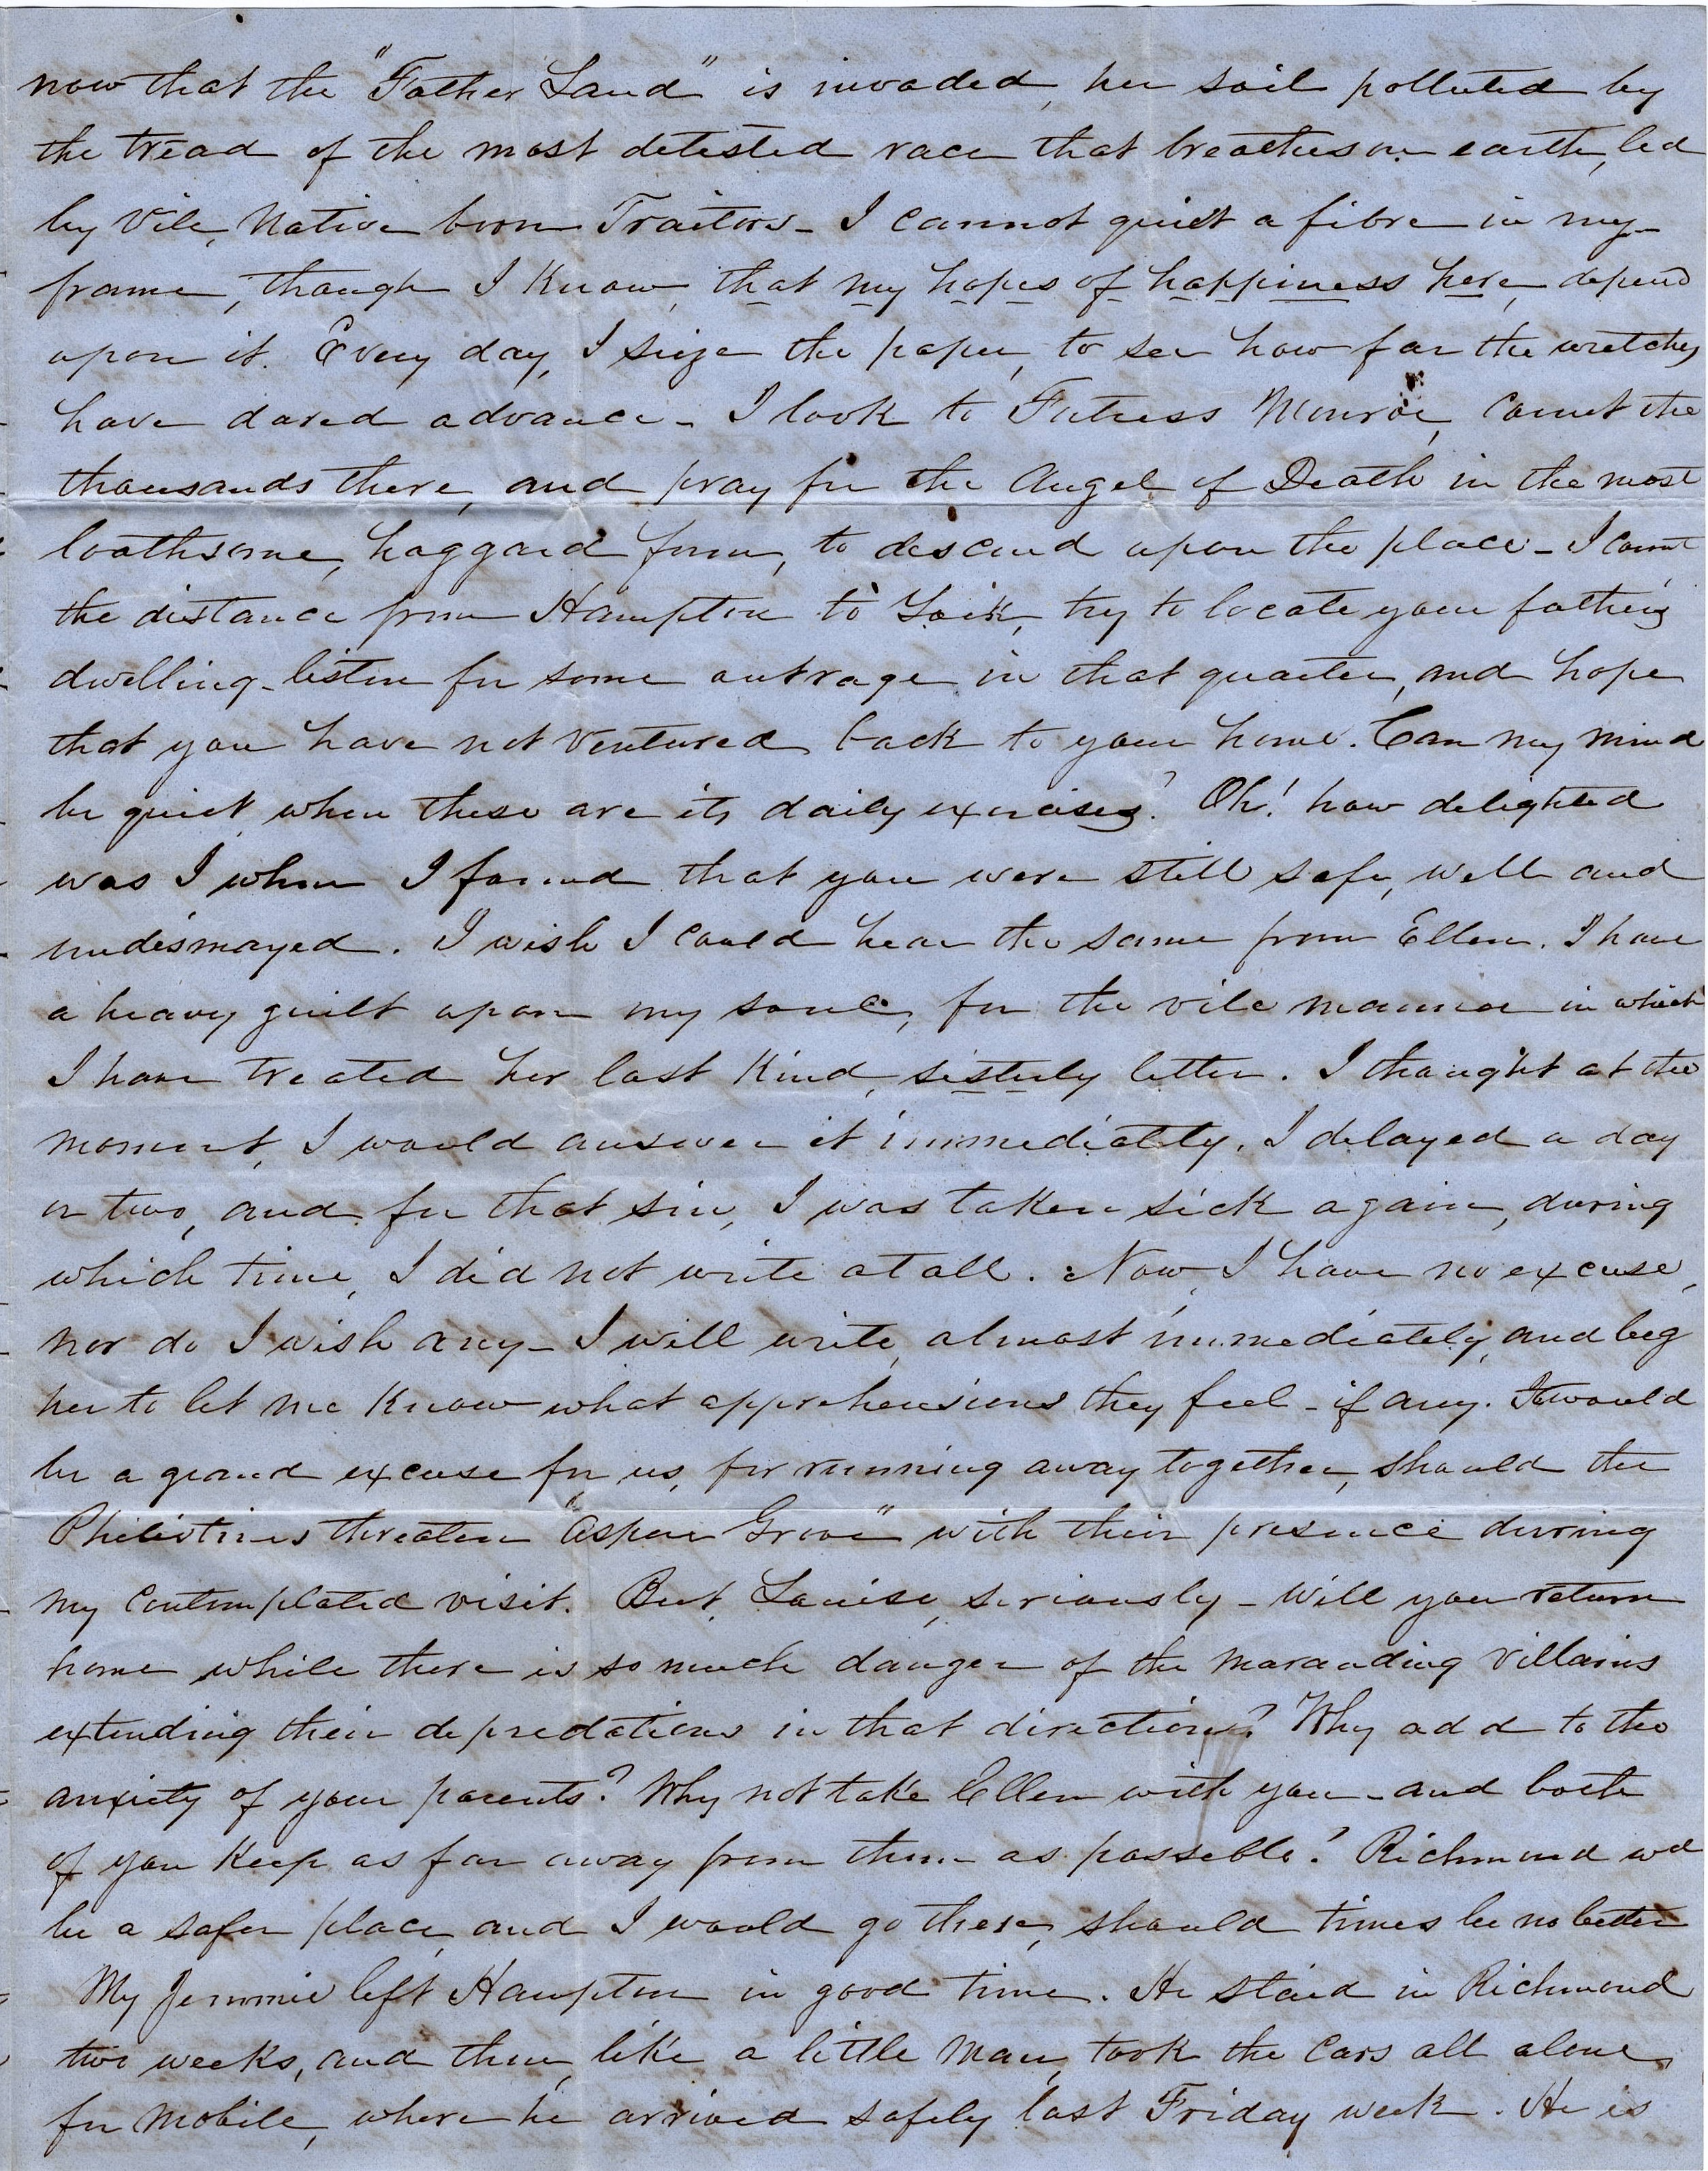 now that the "Father Land" is invaded, her soil polluted by
the tread of the most detested race that breathes on earth, led
by vile, Native born Traitors - I cannot quiet a fibre in my
frame, though I know, that my hopes of happiness here, depend
upon it. Every day, I seize the paper, to see how far the wretches
have dared advance - I look to Fortress Monroe, count the
thousands there, and pray for the Angel of Death in the most
loathsome, haggard form, to descend upon the place - I count
the distance from Hampton to York, try to locate your father's
dwelling - listen for some outrage in that quarter, and hope
that you have not ventured back to your home. Can my mind
be quiet when these are its daily exercises? Oh! how delighted
was I when I found that you were still safe, well and
undismayed. I wish I could hear the same from Ellen. I have
a heavy guilt upon my soul, for the vile manner in which
I have treated her last kind, sisterly letter. I thought at the
moment, I would answer it immediatly, I delayed a day
or two, and for that sin, I was taken sick again, during
which time, I did not write at all. Now, I have no excuse,
nor do I wish any - I will write, almost immediately, and beg
her to let me know what apprehensions they feel - if any. It would
be a grand excuse for us, for running away together, should the
Philistines threaten "Aspen Grove" with their presence during
my contemplated visit. But, Louise, seriously - Will you return
home while there is so much danger of the marauding villains
extending their depredations in that direction? Why add to the
anxiety of your parents? Why not take Ellen with you - and both
of you keep as far away from them as possible? Richmond wd
be a safer place, and I would go there, should times be no better
My Jemmie left Hampton in good time. He staid in Richmond
two weeks, and then, like a little man, took the cars all alone,
for Mobile, where he arrived safely last Friday week. He is